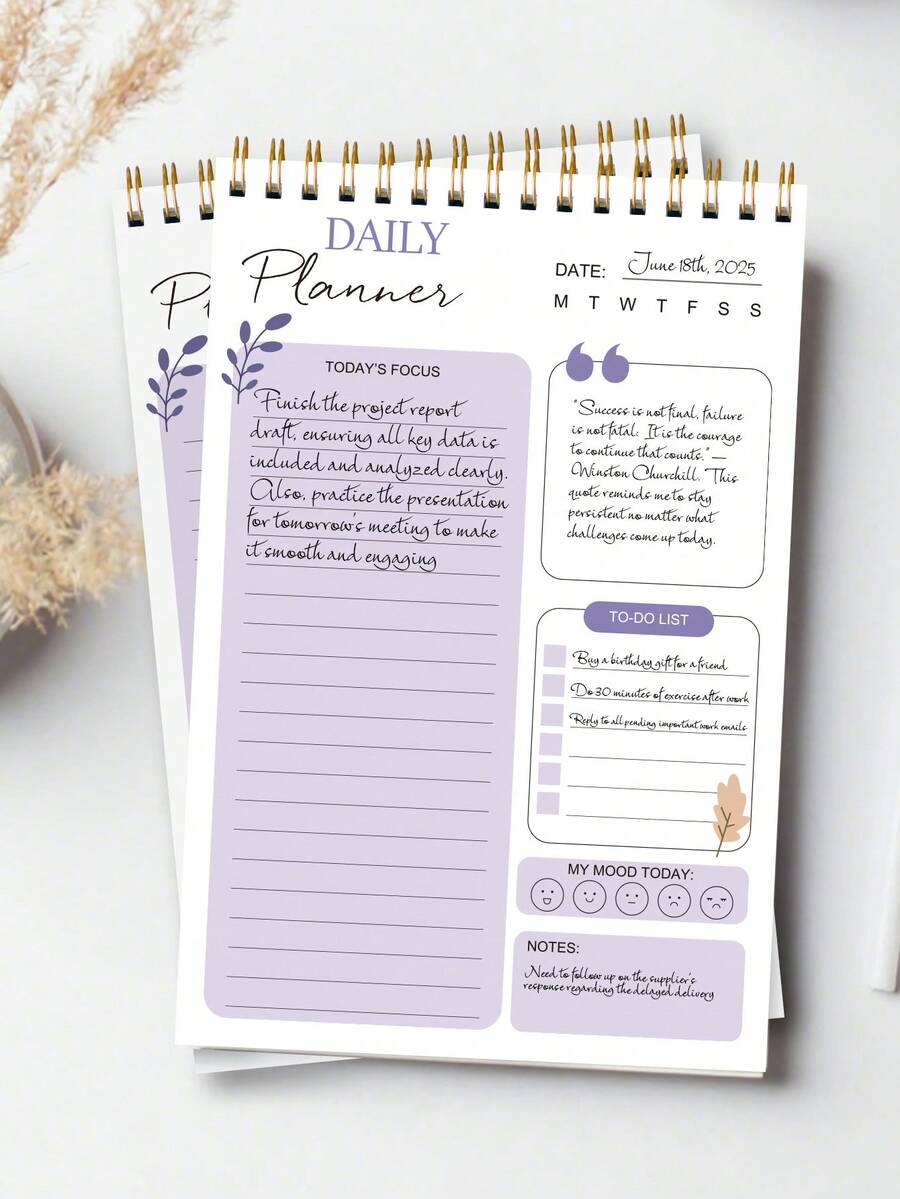 DAILY
Planner
P
DATE: June 18th, 2025
M T W T F S S
TODAY'S FOCUS
Finish the project report
draft, ensuring all key data is
included and analyzed clearly.
Also, practice the presentation
for tomorrow's meeting to make
it smooth and engaging
"Success is not final, failure
is not fatal: It is the courage
to continue that counts." —
Winston Churchill. This
quote reminds me to stay
persistent no matter what
challenges come up today.
TO-DO LIST
Buy a birthday gift for a friend
Do 30 minutes of exercise after work
Reply to all pending important work emails
MY MOOD TODAY:
NOTES:
Need to follow up on the supplier's
response regarding the delayed delivery